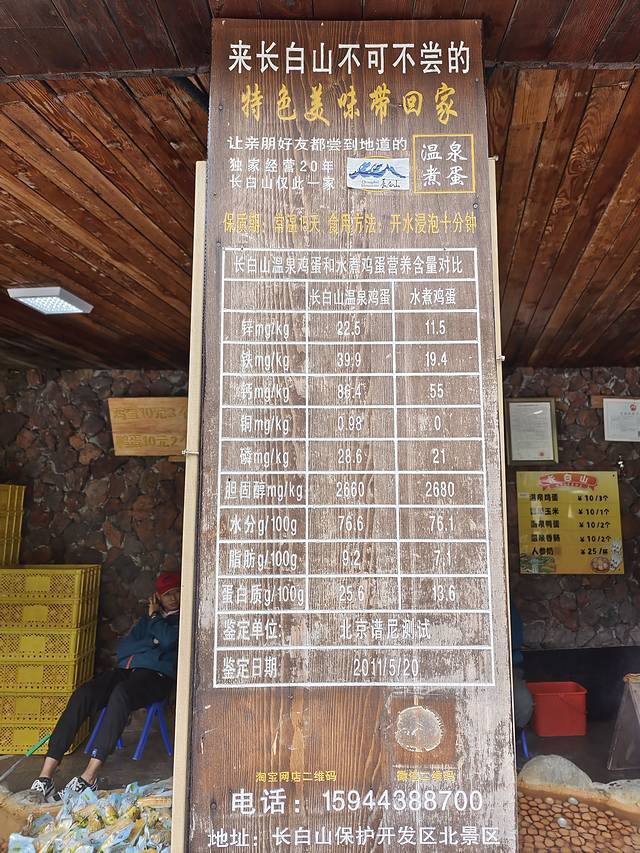 来长白山不可不尝的
特色美味带回家
让亲朋好友都尝到地道的
独家经营20年
长白山仅此一家
温泉
煮蛋
长白山
保质期：常温15天 食用方法：开水浸泡十分钟
长白山温泉鸡蛋和水煮鸡蛋营养含量对比
长白山温泉鸡蛋 水煮鸡蛋
锌mg/kg 22.5 11.5
铁mg/kg 39.9 19.4
钙mg/kg 86.4 55
铜mg/kg 0.98 0
磷mg/kg 28.6 21
胆固醇mg/kg 2660 2680
水分g/100g 76.6 76.1
脂肪g/100g 9.2 7.1
蛋白质g/100g 25.6 13.6
鉴定单位: 北京谱尼测试
鉴定日期: 2011/5/20
淘宝网店二维码 微信二维码
电话：15944388700
地址：长白山保护开发区北景区
鸡蛋10元3个
10元2
长白山
温泉鸡蛋 ¥10/3个
玉米 ¥10/1个
温泉鸭蛋 ¥10/2个
温泉香肠 ¥10/2个
人参奶 ¥25/杯